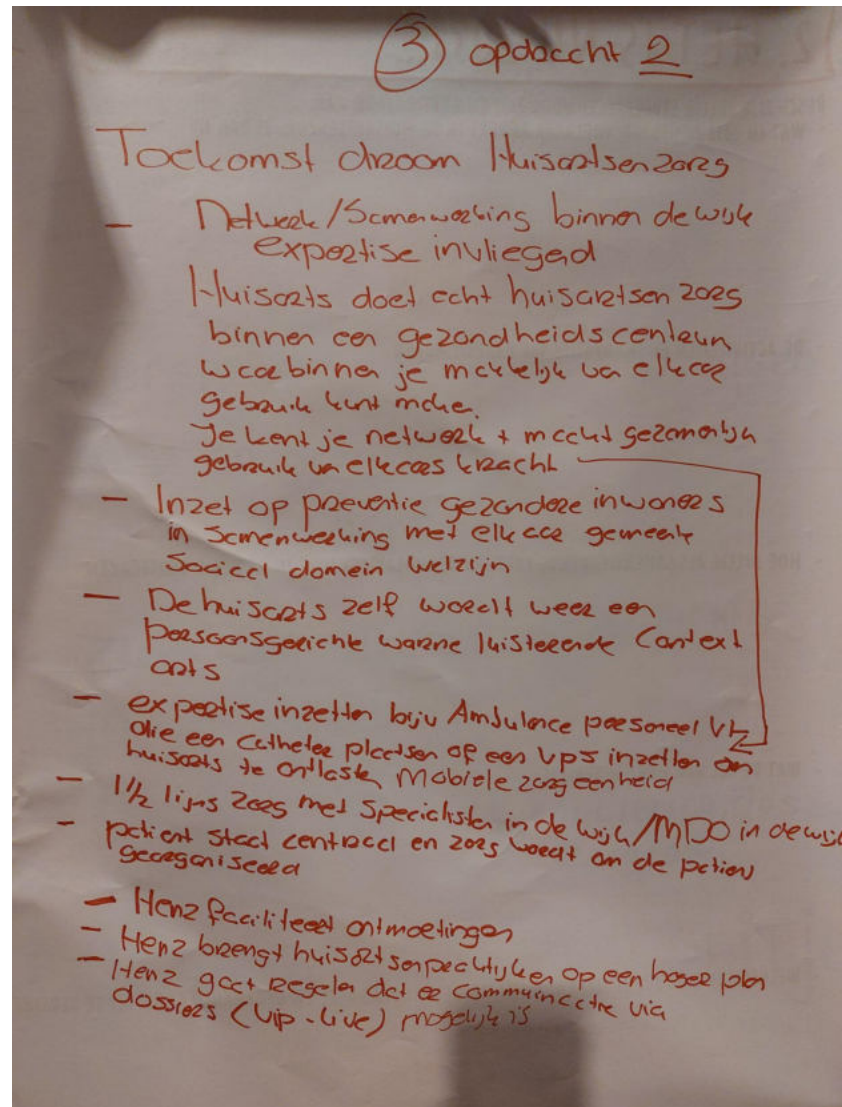 3 opdracht 2
Toekomst droom Huisartsenzorg
- Netwerk/Samenwerking binnen de wijk
expertise invliegend
Huisarts doet echt huisartsenzorg
binnen een gezondheidscentrum
waarbinnen je makkelijk van elkaar
gebruik kunt maken.
Je kent je netwerk + maakt gezamenlijk
gebruik van elkaars kracht
- Inzet op preventie gezondere inwoners
in samenwerking met elkaar gemeente
Sociaal domein welzijn
- De huisarts zelf wordt weer een
persoonsgerichte warme luisterende Context
arts
- expertise inzetten bijv Ambulance personeel
die een Catheter plaatsen of een VPS inzetten om
huisarts te ontlasten Mobiele zorgeenheid
- 1½ lijns zorg met Specialisten in de wijk/MDO in de wijk
- patient staat centraal en zorg wordt om de patient
georganiseerd
- Henz faciliteert ontmoetingen
- Henz brengt huisartsenpraktijken op een hoger plan
- Henz gaat regelen dat er communicatie via
dossiers (Vip-Live) mogelijk is